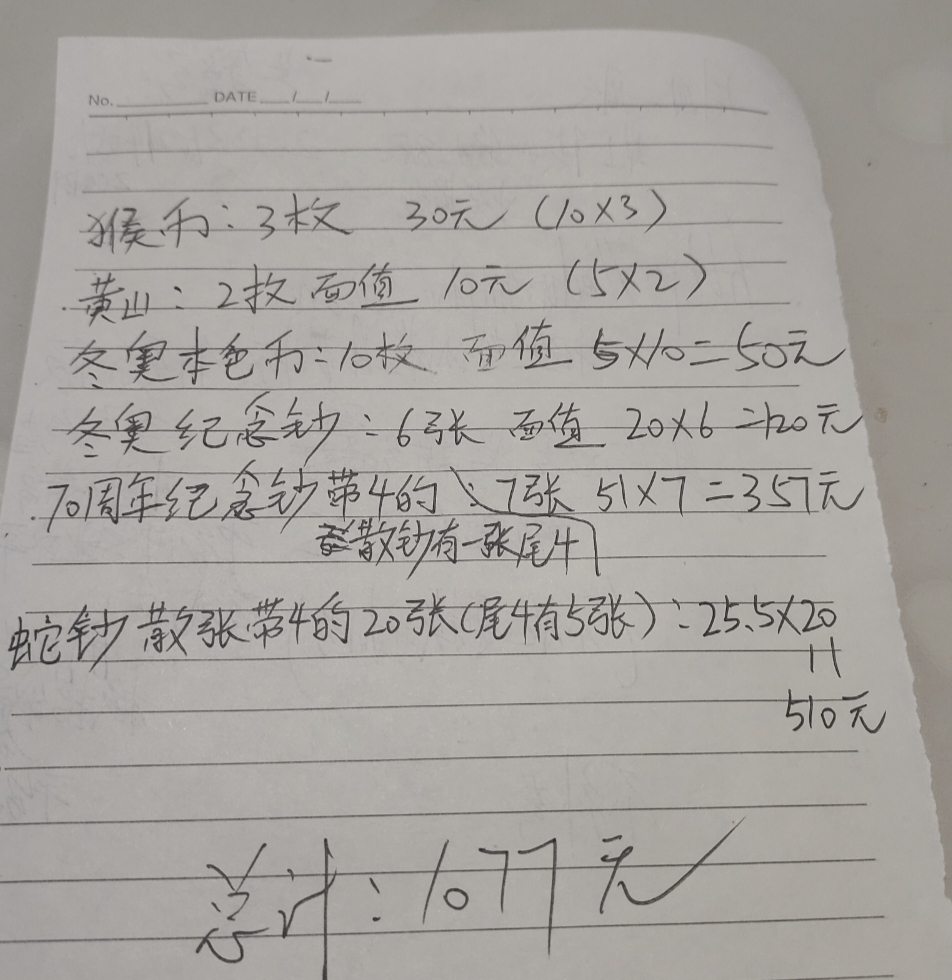 No. DATE / /
猴币：3枚 30元（10×3）
黄山：2枚 面值 10元（5×2）
冬奥本色币：10枚 面值 5×10=50元
冬奥纪念钞：6张 面值 20×6=120元
70周年纪念钞带4的：7张 51×7=357元
散钞有一张尾4
蛇钞散张带4的20张（尾4有5张）：25.5×20
=
510元
总计：1077元